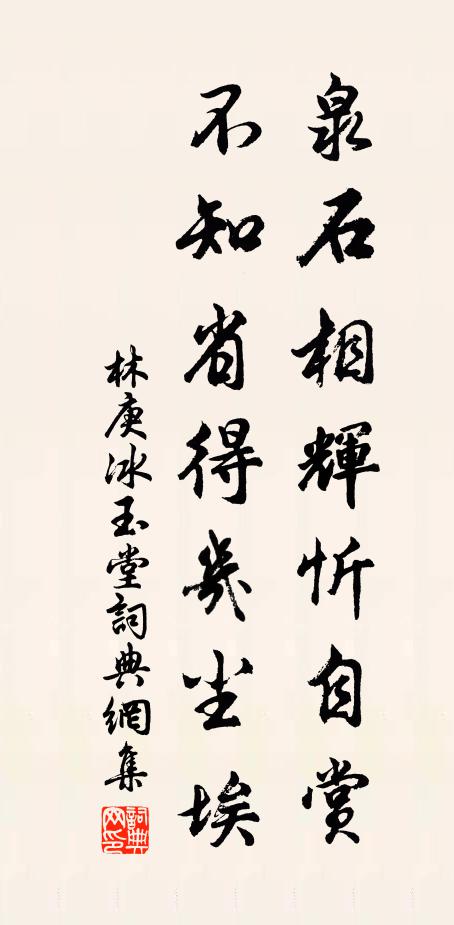 泉石相輝忻自賞
不知省得幾尘埃
林庚冰玉堂詞典網集
詞典網印